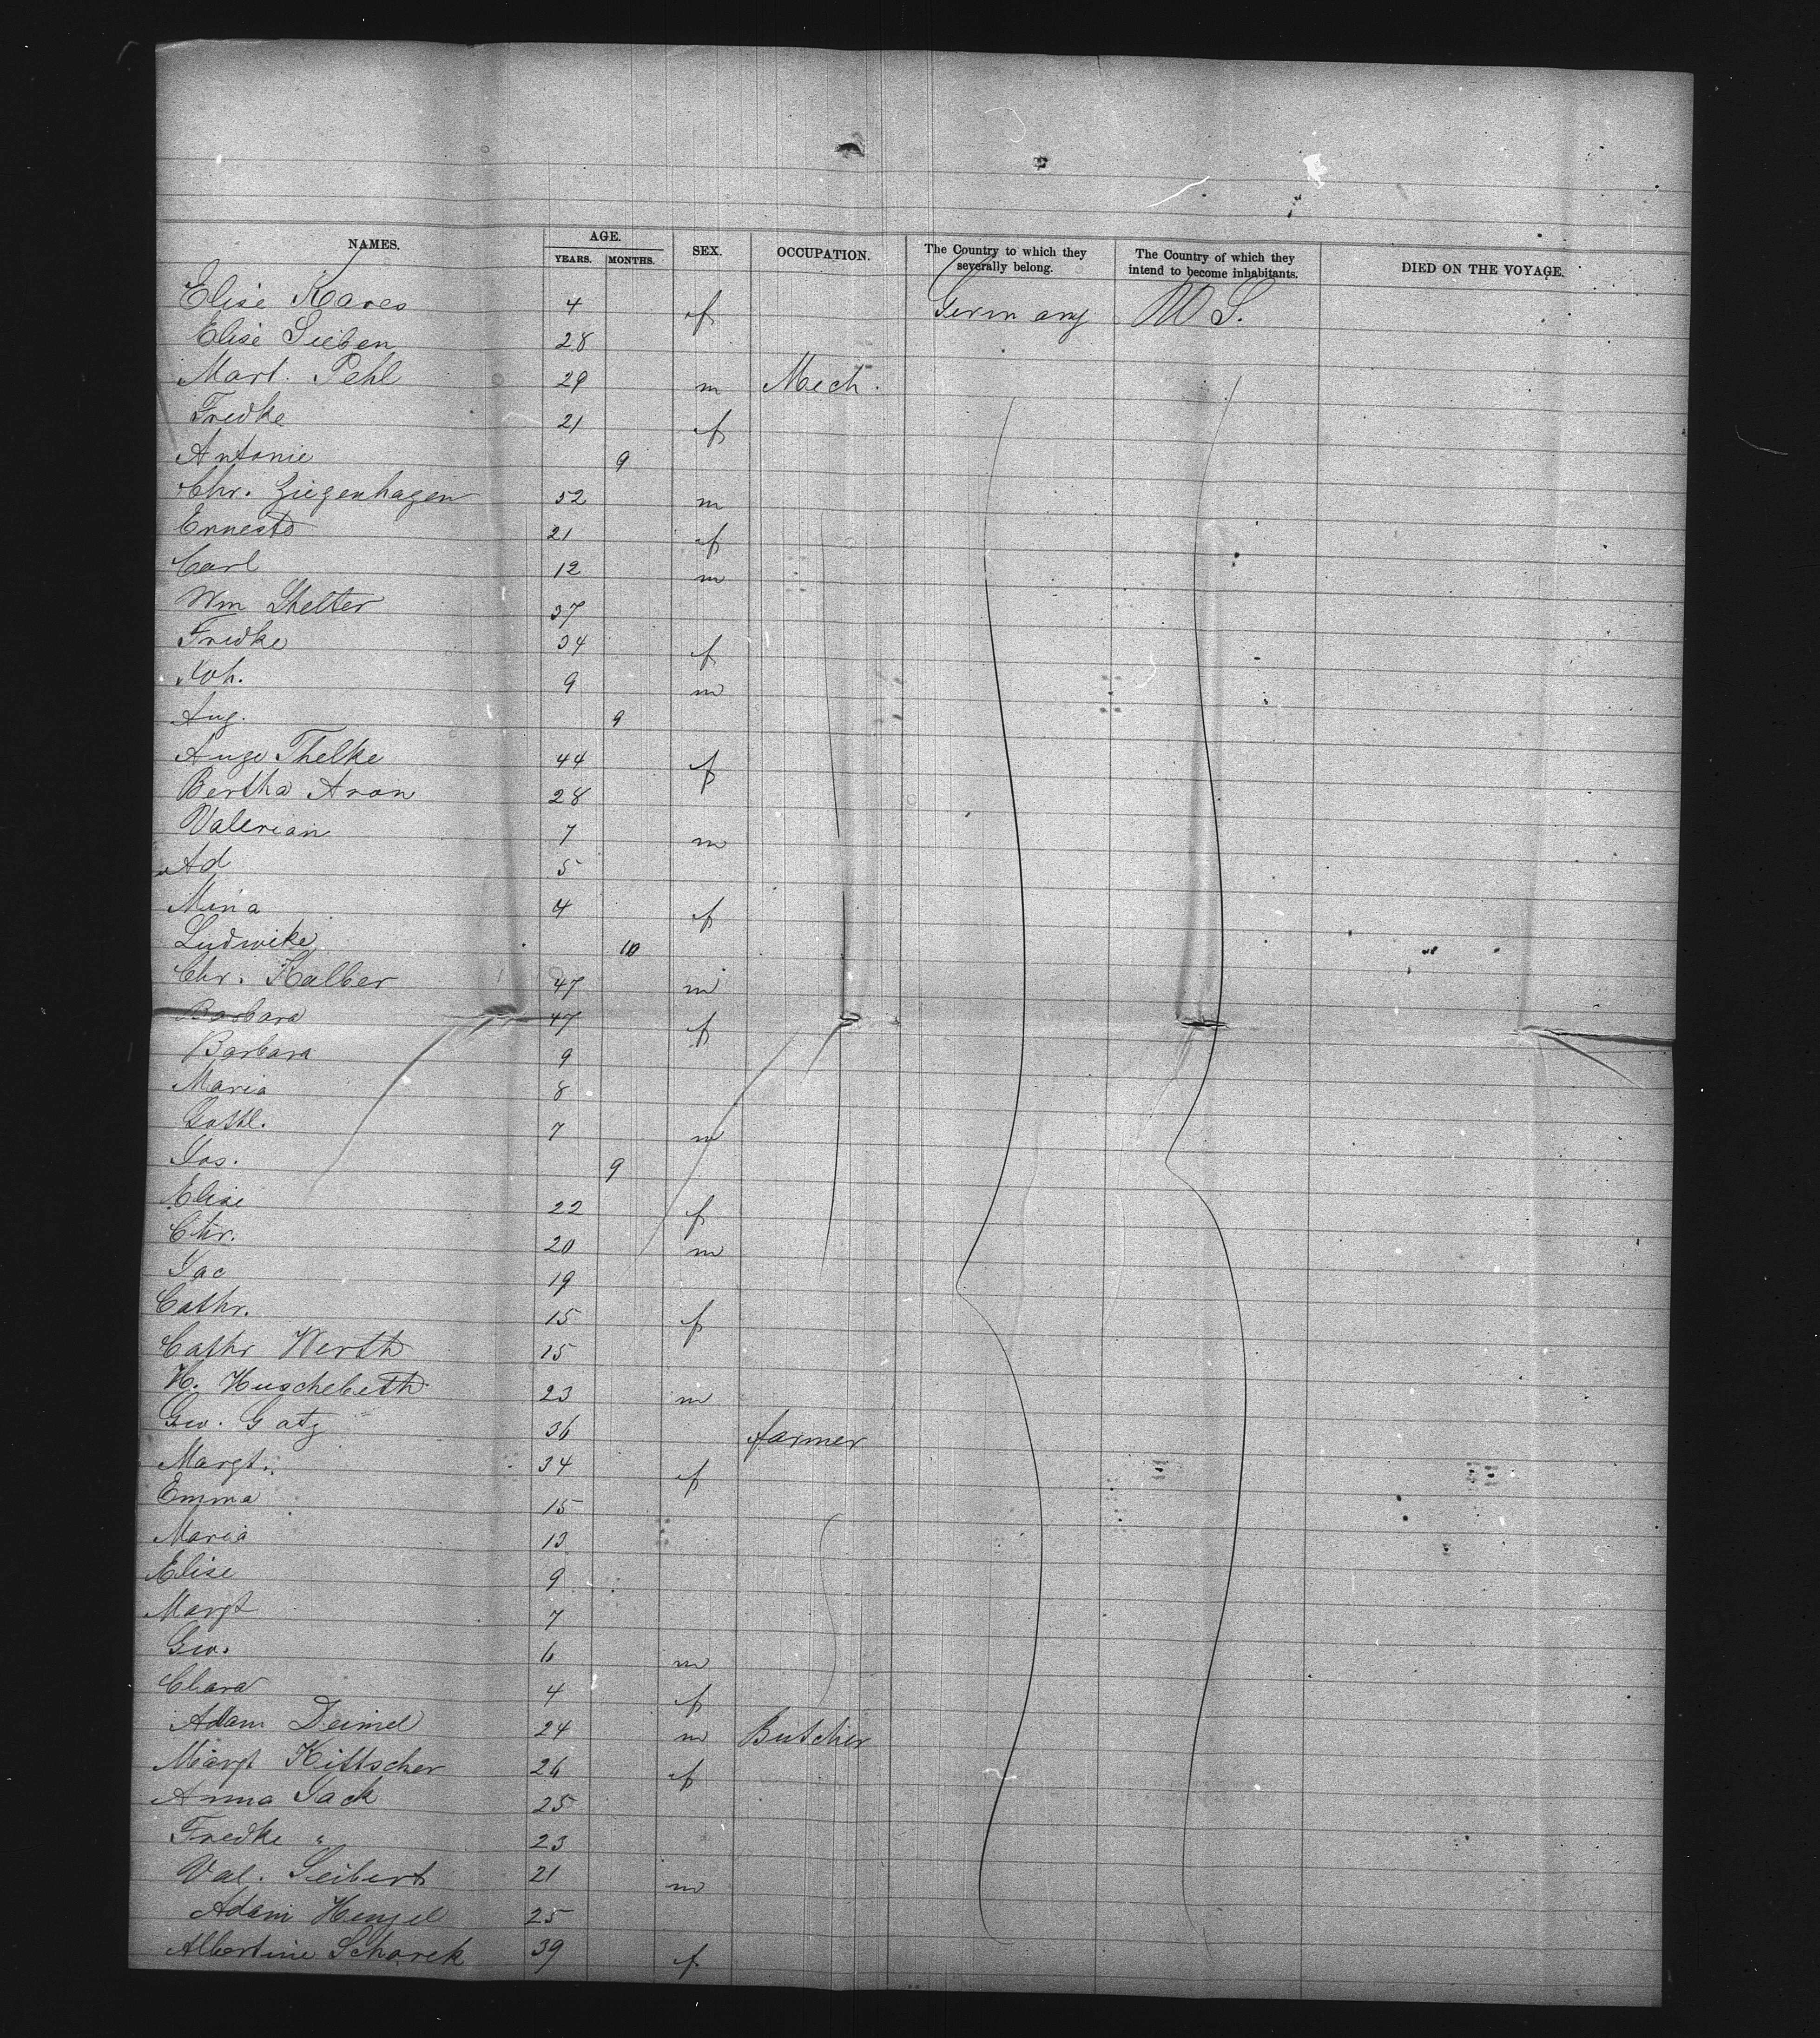 NAMES. AGE. YEARS. MONTHS. SEX. OCCUPATION. The Country to which they severally belong. The Country of which they intend to become inhabitants. DIED ON THE VOYAGE.
Elise Kares 4 f Germany U S.
Elise Sieben 28
Mart. Pehl 29 m Mech.
Fredke 21 f
Antonie 9
Chr. Ziegenhagen 52 m
Ernesto 21 f
Carl 12 m
Wm Shelter 37
Fredke 34 f
Joh. 9 m
Aug. 9
Auge Thelke 44 f
Bertha Aron 28
Valerian 7 m
Ad 5
Mina 4 f
Ludwike 10
Chr. Kalber 47 m
Barbara 47 f
Barbara 9
Maria 8
Gottl. 7 m
Jos. 9
Elise 22 f
Chr. 20 m
Jac 19
Cathr. 15 f
Cathr Werth 15
H. Huschebeth 23 m
Geo. Gatz 36 farmer
Margt. 34 f
Emma 15
Maria 13
Elise 9
Margt 7
Geo. 6 m
Clara 4 f
Adam Deimel 24 m Butcher
Margt Kittscher 26 f
Anna Jack 25
Fredke " 23
Val. Seibert 21 m
Adam Hengel 25
Albertine Schorek 39 f